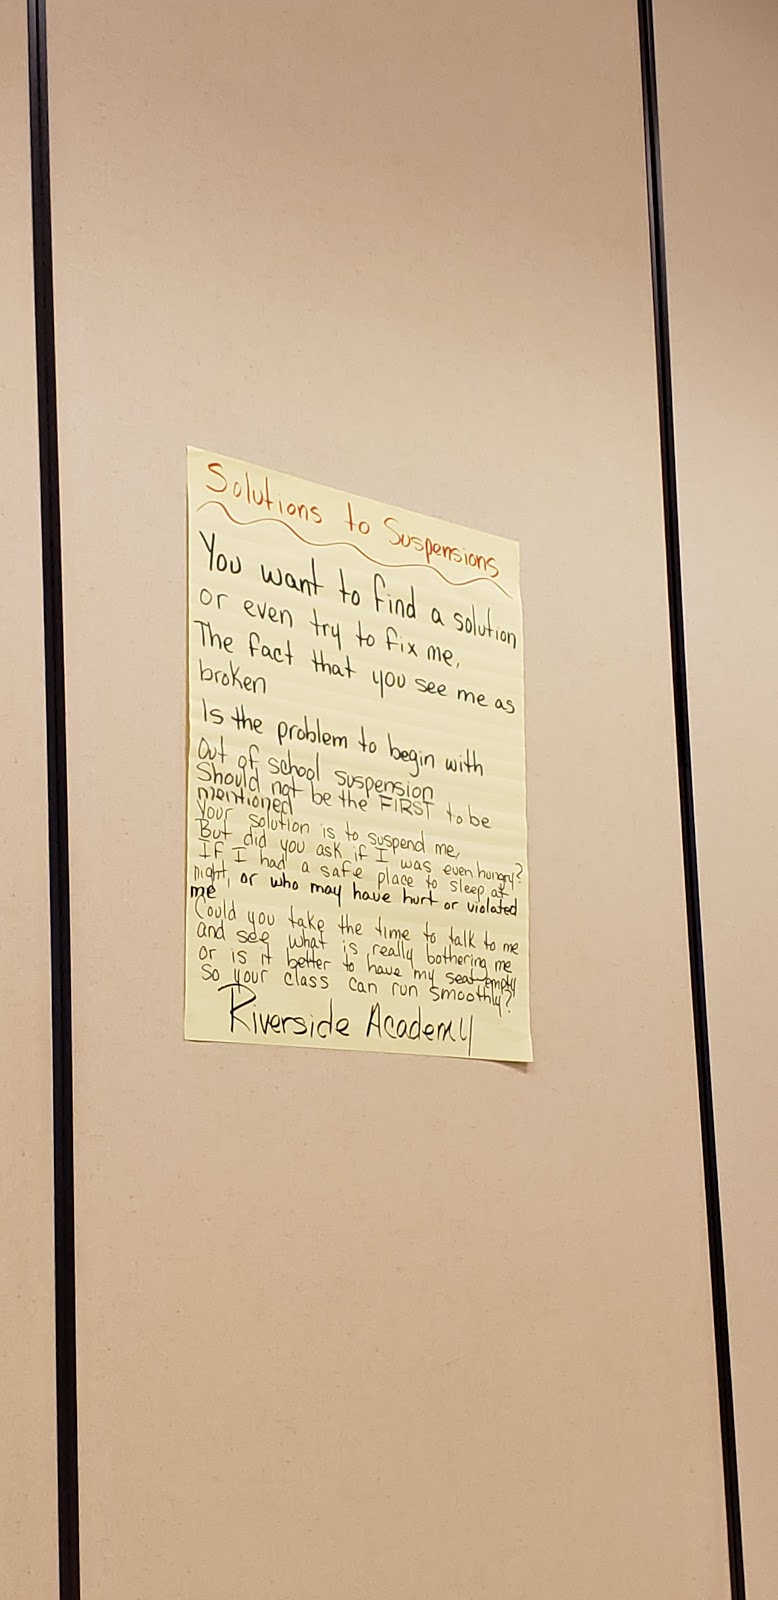 Solutions to Suspensions
You want to find a solution
or even try to fix me,
The fact that you see me as
broken
Is the problem to begin with
Out of school suspension
Should not be the FIRST to be
mentioned
Your solution is to suspend me,
But did you ask if I was even hungry?
If I had a safe place to sleep at
night, or who may have hurt or violated
me
Could you take the time to talk to me
and see what is really bothering me
or is it better to have my seat empty
So your class can run smoothly?
Riverside Academy